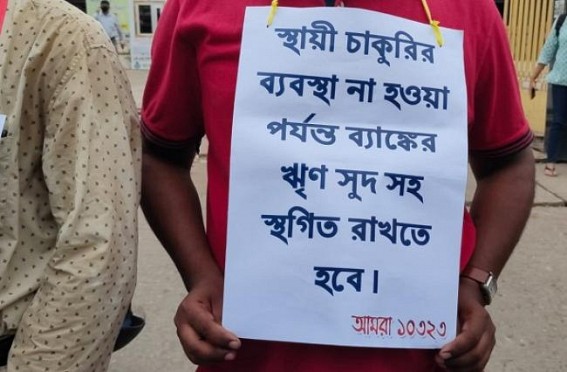 স্থায়ী চাকুরির
ব্যবস্থা না হওয়া
পর্যন্ত ব্যাঙ্কের
ঋৃণ সুদ সহ
স্থগিত রাখতে
হবে।
আমরা ১০৩২৩